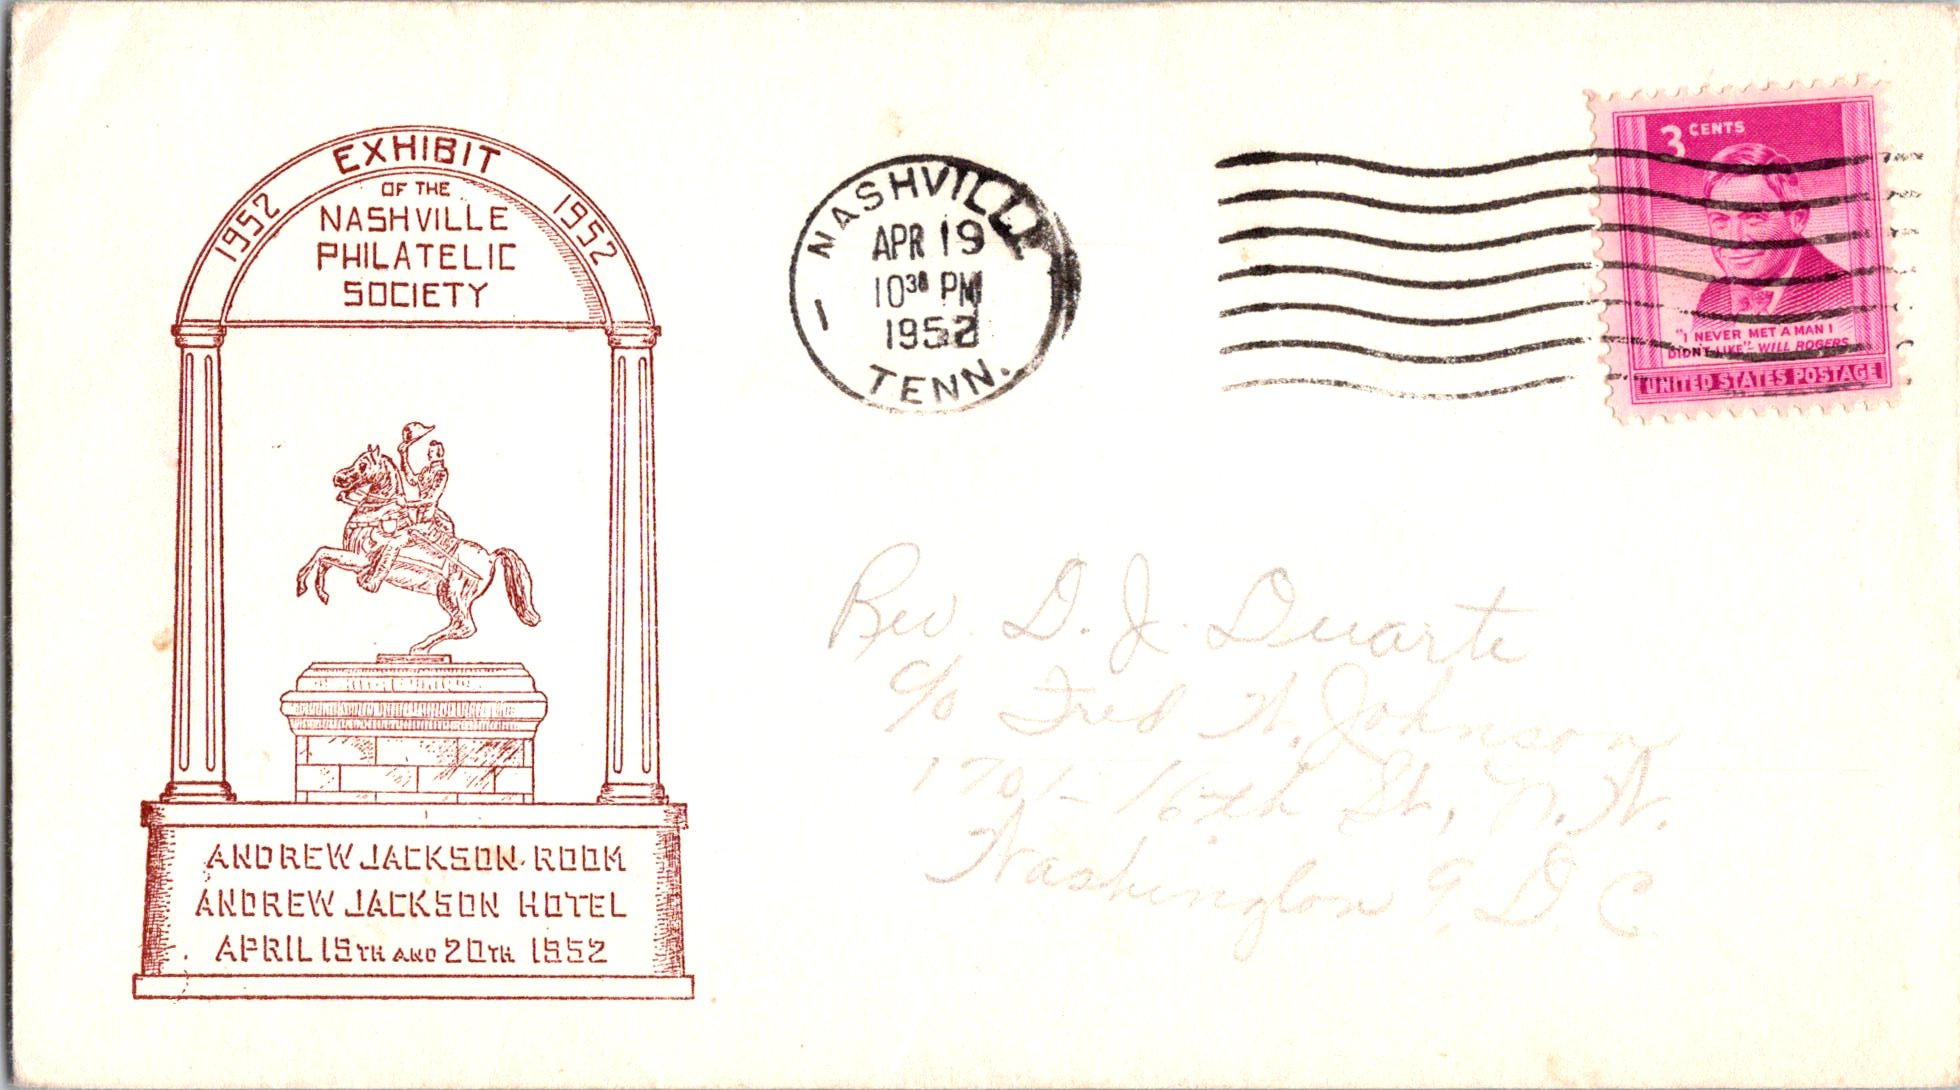 1952 EXHIBIT 1952
OF THE
NASHVILLE
PHILATELIC
SOCIETY
ANDREW JACKSON ROOM
ANDREW JACKSON HOTEL
APRIL 19TH AND 20TH 1952
NASHVILLE
APR 19
10³⁰ PM
1952
1
TENN.
3 CENTS
"I NEVER MET A MAN I
DIDN'T LIKE"- WILL ROGERS
UNITED STATES POSTAGE
Rev. D. J. Duarte
c/o Fred W. Johnson
1701- 16th St, N.W.
Washington 9, D C